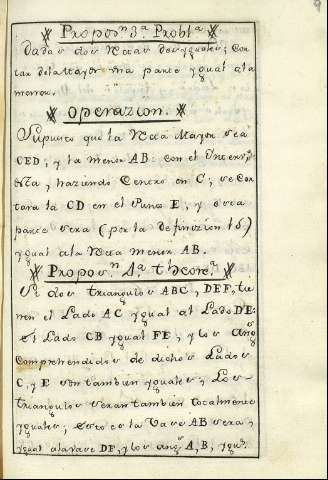 9
Propos.n 3.a Probl.a
Dadas dos Rectas desyguales; Cor
tar de la Mayor una parte ygual a la
menor.
Operazion.
Supuesto que la Recta Mayor sea
CED; y la menor AB: con el
y haziendo Centro en C; se Cor
tara la CD en el Punto E, y esta
parte sera (por la definizion 15.)
ygual a la Recta menor AB.
Propos.n 4.a theore.a
Si dos triangulos ABC, DEF, tie
nen el Lado AC ygual al Lado DE:
el Lado CB ygual FE, y los Ang.s
Comprehendidos de dichos Lados
C, y E son tambien yguales; Los
triangulos seran tambien totalmente
yguales; esto es la Vase AB sera
ygual a la vase DF, y los ang.s A, B, ygu.s